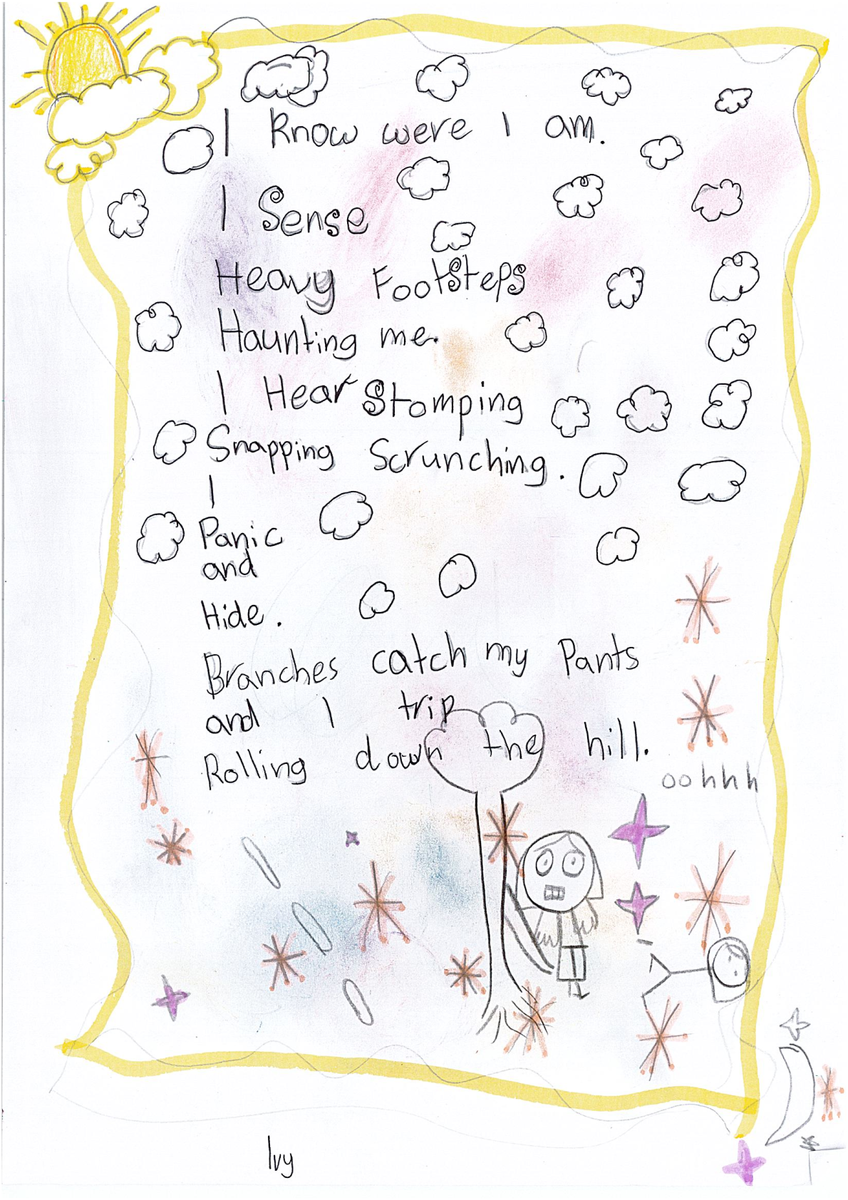 I Know were I am.
I Sense
Heavy Footsteps
Haunting me.
I Hear Stomping
Snapping Scrunching.
I
Panic
and
Hide.
Branches catch my Pants
and I trip
Rolling down the hill.
oohhh
Ivy